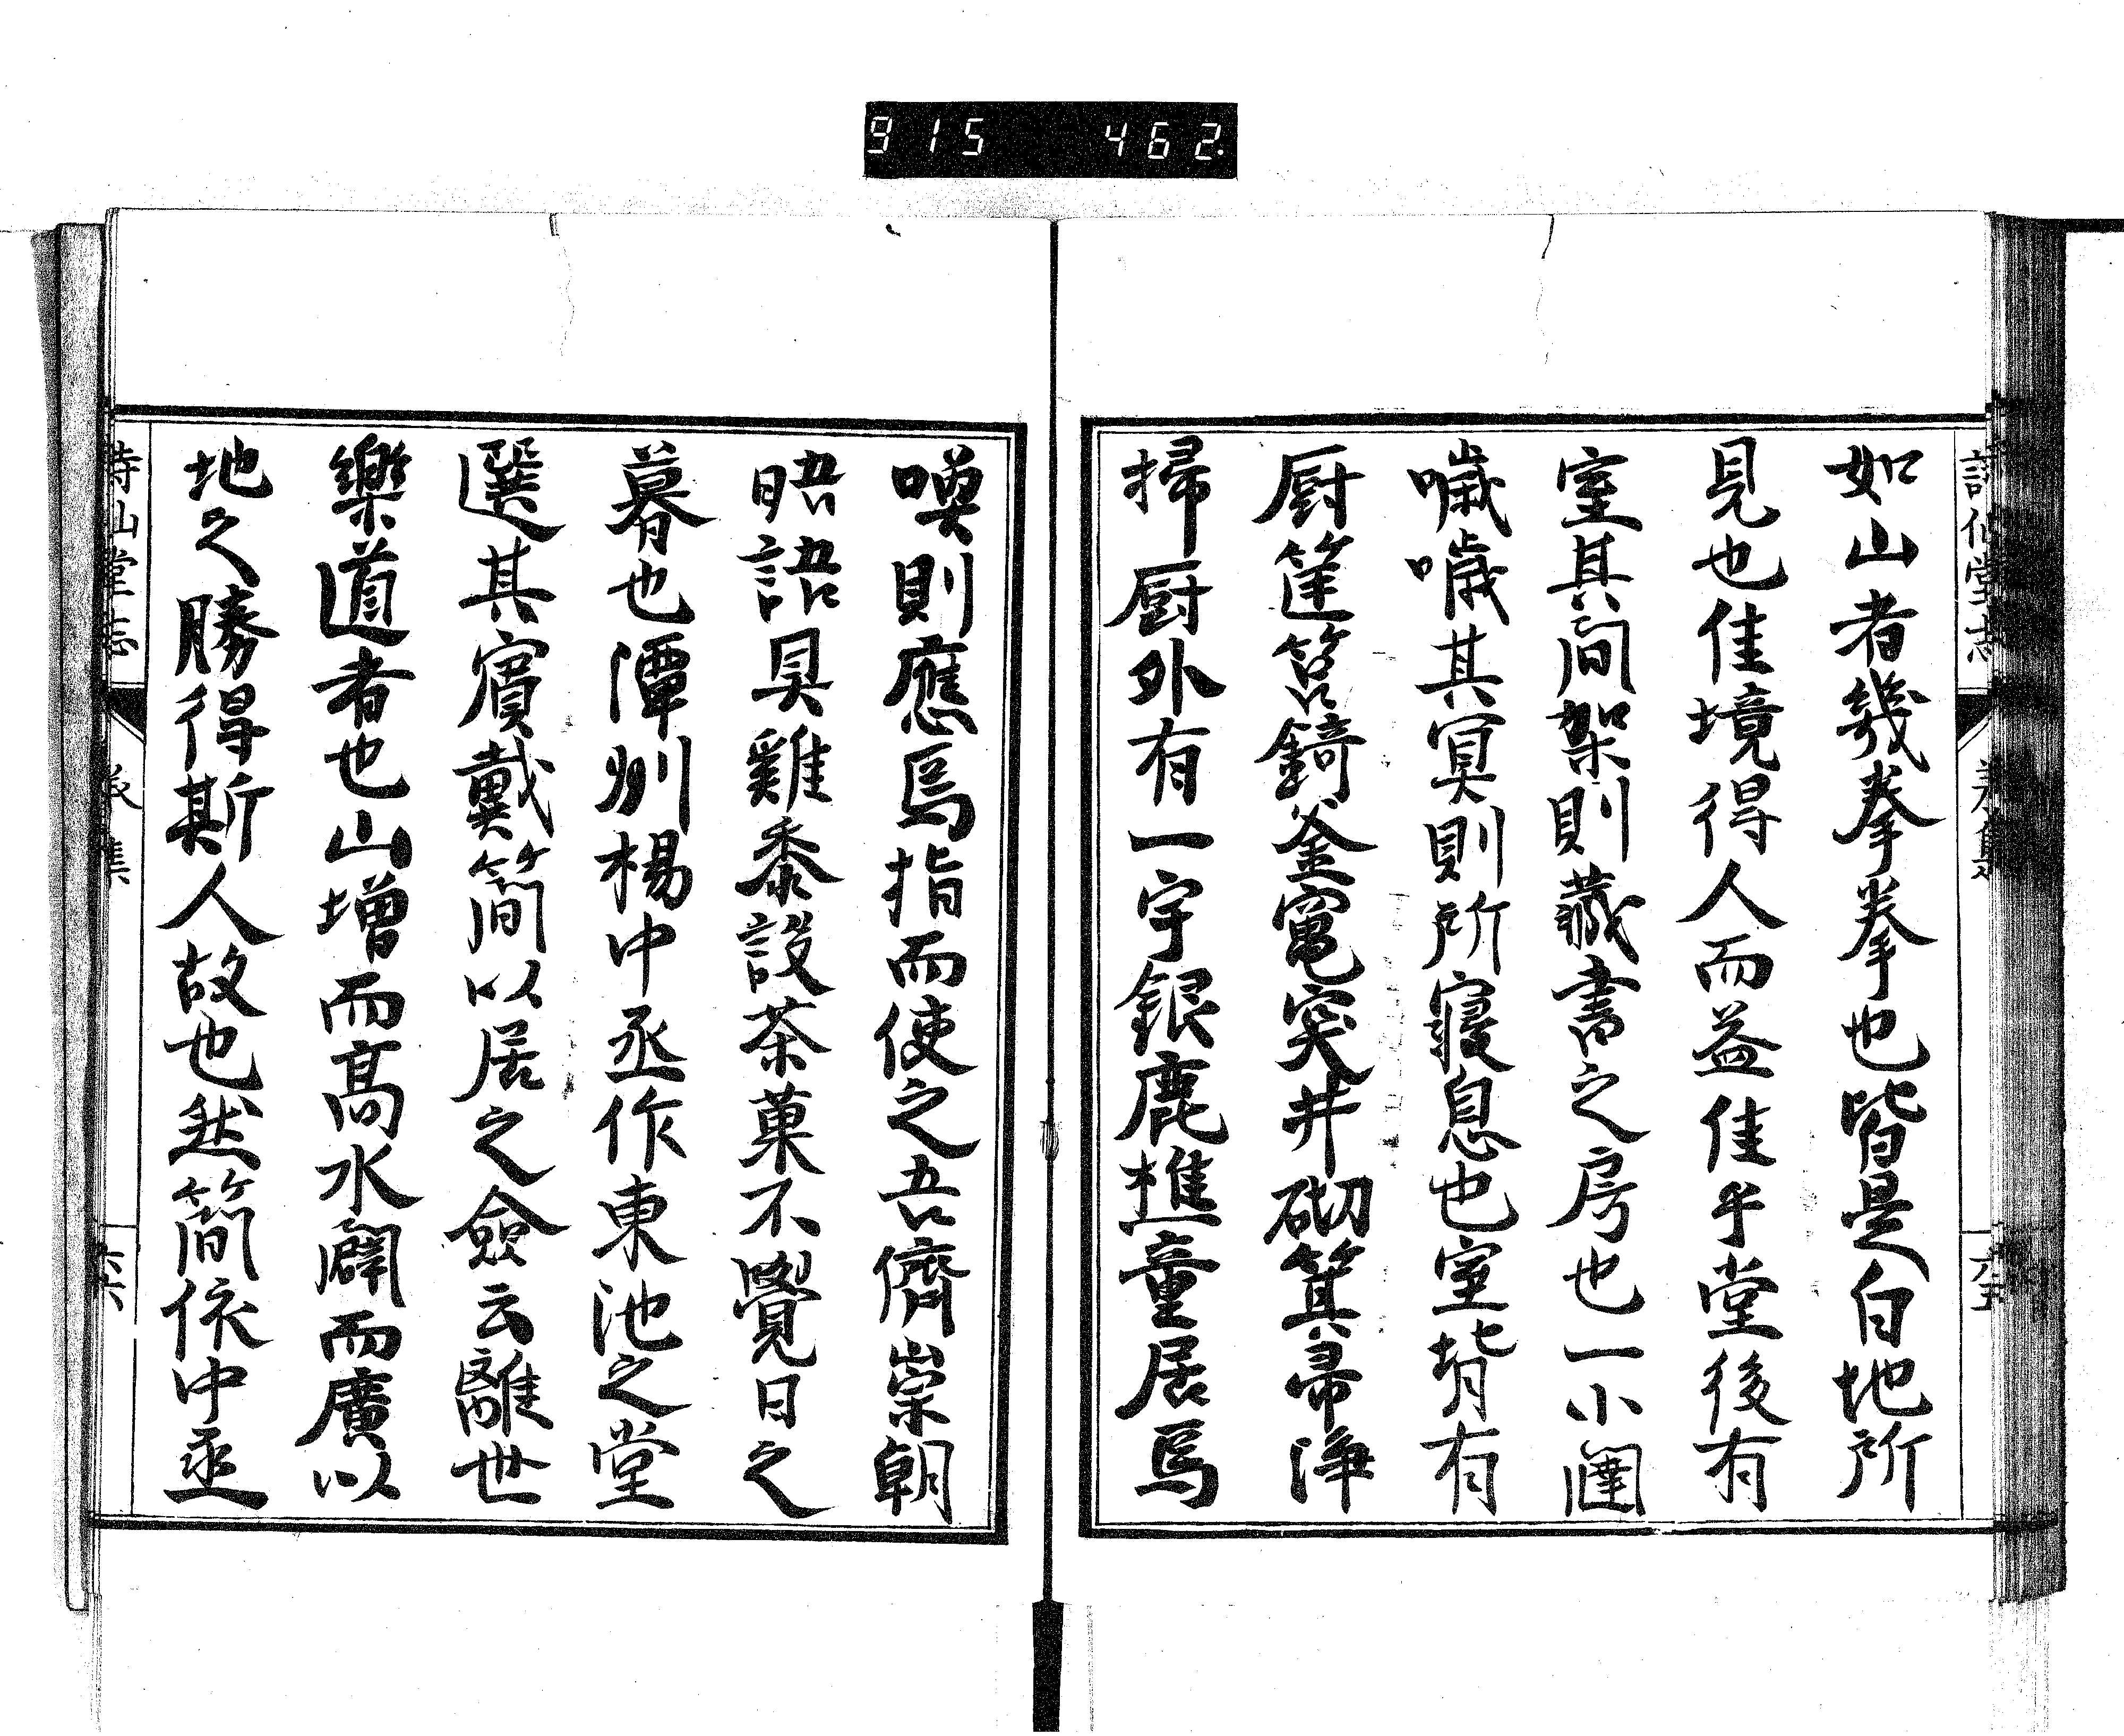 915 462
如山者幾拳拳也皆是白地所
見也佳境得人而益佳乎堂後有
室其間架則藏書之房也一小闥
噦噦其冥則所寢息也室背有
厨筐筥錡釜竃突井砌箕帚淨
掃厨外有一宇銀鹿樵童居焉
喚則應焉指而使之吾儕崇朝
晤語具雞黍設茶菓不覺日之
暮也潭州楊中丞作東池之堂
選其賓戴簡以居之僉云離世
樂道者也山增而高水闢而廣以
地之勝得斯人故也然簡依中丞
詩仙堂志
六五
詩山堂志
六六